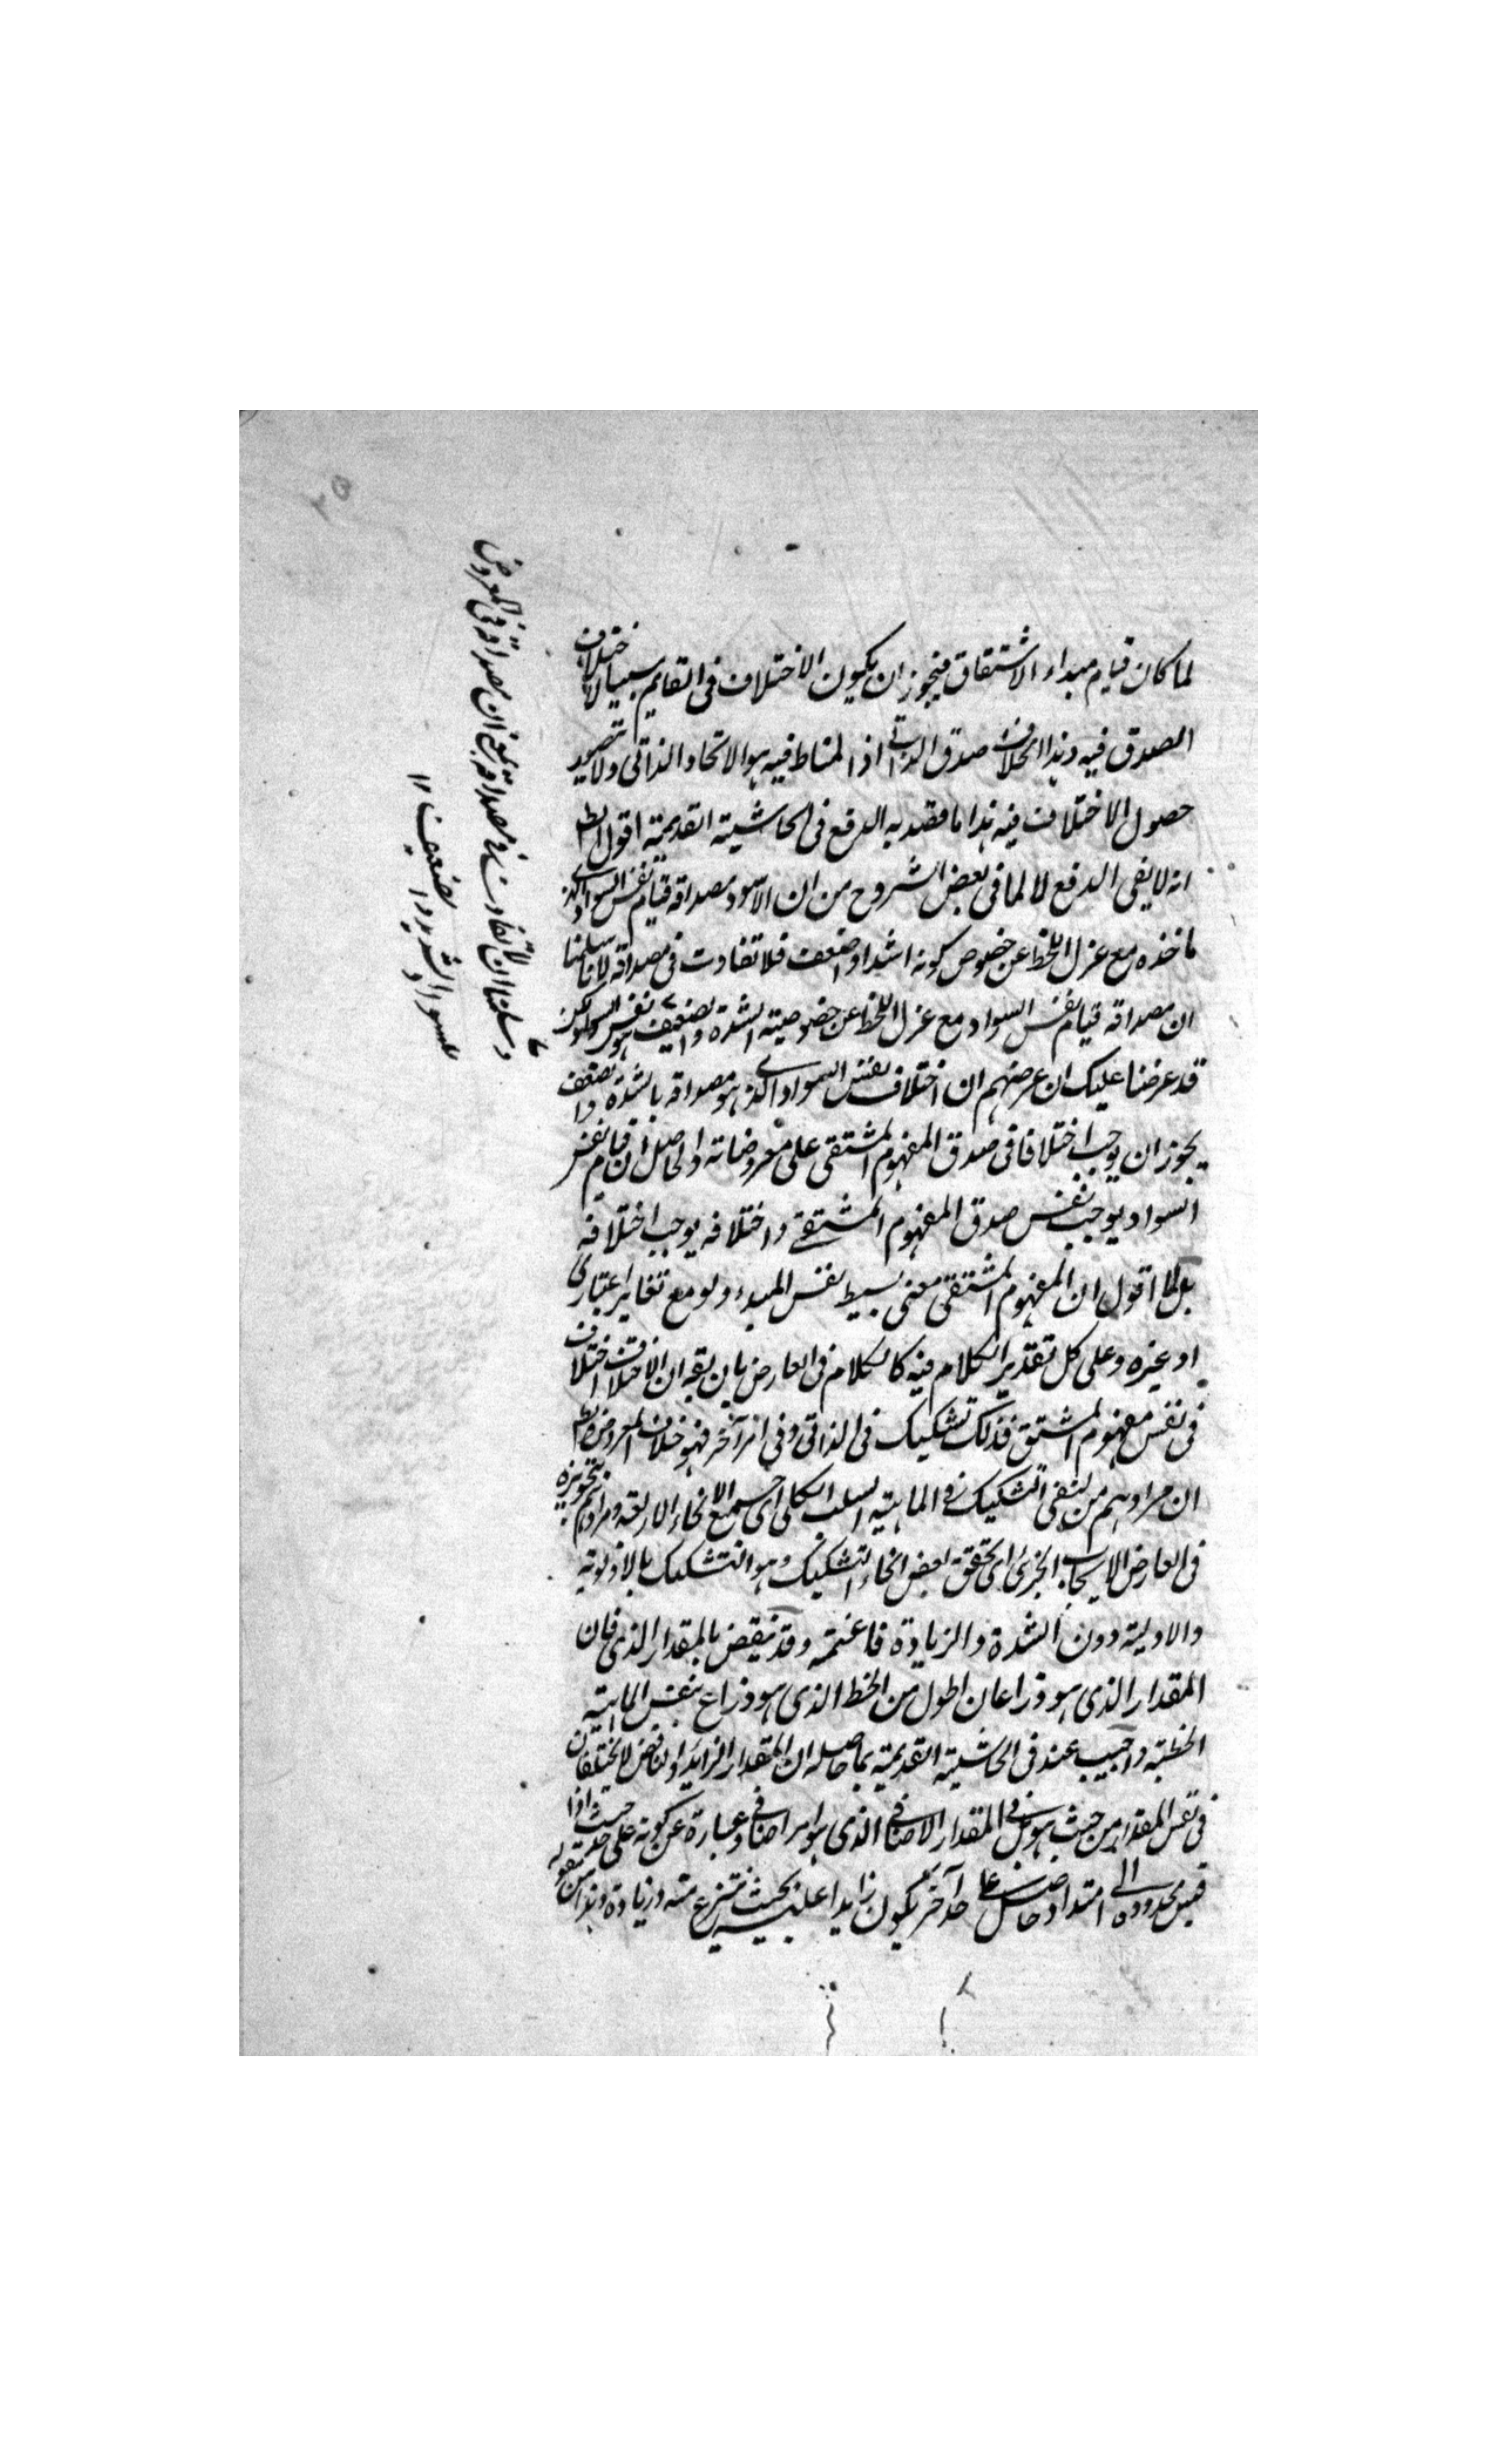 لما كان قيام مبداء الاشتقاق فيجوز ان يكون الاختلاف فى القايم سببا لاختلاف
الصدق فيه وهذا بخلاف صدق الذاتى اذ المناط فيه هو الاتحاد الذاتى ولا يتصور
حصول الاختلاف فيه هذا ما قصد به الدفع فى الحاشية القديمة اقول
انه لا يفى الدفع لا لما فى بعض الشروح من ان الاسود مصداقه قيام نفس السواد الذى
ماخذه مع عزل اللحظ عن خصوص كونه اشد او اضعف فلا تفاوت فى مصداقه لانا سلمنا
ان مصداقه قيام نفس السواد مع عزل اللحظ عن خصوصية الشدة والضعيف هو نفس السواد لكن
قد عرضنا عليك ان غرضهم ان اختلاف نفس السواد الذى هو مصداقه بالشدة والضعف
يجوز ان يوجب اختلافا فى صدق المفهوم المشتقى على معروضاته والحاصل ان قيام نفس
السواد يوجب نفس صدق المفهوم المشتقى واختلافه يوجب اختلافه
بل لما اقول ان المفهوم المشتقى معنى بسيط نفس المبدء ولو مع تغاير اعتبارى
او غيره وعلى كل تقدير الكلام فيه كالكلام فى العارض بان يقه ان الاختلاف اختلاف
فى نفس مفهوم المشتق فذلك تشكيك فى الذاتى وفى امر آخر فهو خلاف المعروض
ان مرادهم من نفى التشكيك فى الماهية السلب الكلى اى جميع الانحاء الاربعة ومرادهم بتجويزه
فى العارض الايجاب الجزئى اى تحقق بعض انحاء التشكيك وهو التشكيك بالاولوية
والاولية دون الشدة والزيادة فاغتنمه وقد ينقض بالمقدار الذى فان
المقدار الذى هو ذراعان اطول من الخط الذى هو ذراع بنفس الماهية
الخطية واجيب عنه فى الحاشية القديمة بما حاصله ان المقدار الزايد او الناقص لا يختلفان
فى نفس المقدار من حيث هو بل فى المقدار الاضافى الذى هو امر اضافى وعبارة عن كونه على حد حيث اذا
قيس محدوده الى امتداد حاصل على حد آخر يكون زايدا عليه بحيث ينتزع منه وزيادة وهذا من مقوله
وسلمنا ان لا تفاوت فى مصداقه بمعنى ان مصداقه فى المعروض
للسواد الشديد والضعيف ١٢
٢٥